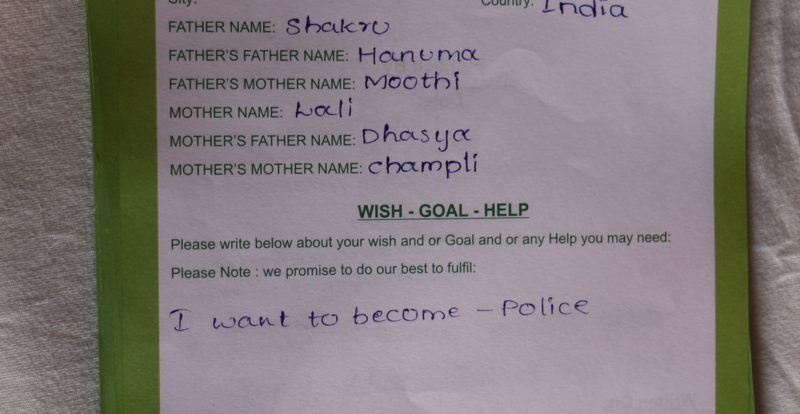 City:
Country: India
FATHER NAME: Shakru
FATHER'S FATHER NAME: Hanuma
FATHER'S MOTHER NAME: Moothi
MOTHER NAME: Lali
MOTHER'S FATHER NAME: Dhasya
MOTHER'S MOTHER NAME: champli
WISH - GOAL - HELP
Please write below about your wish and or Goal and or any Help you may need:
Please Note : we promise to do our best to fulfil:
I want to become - Police